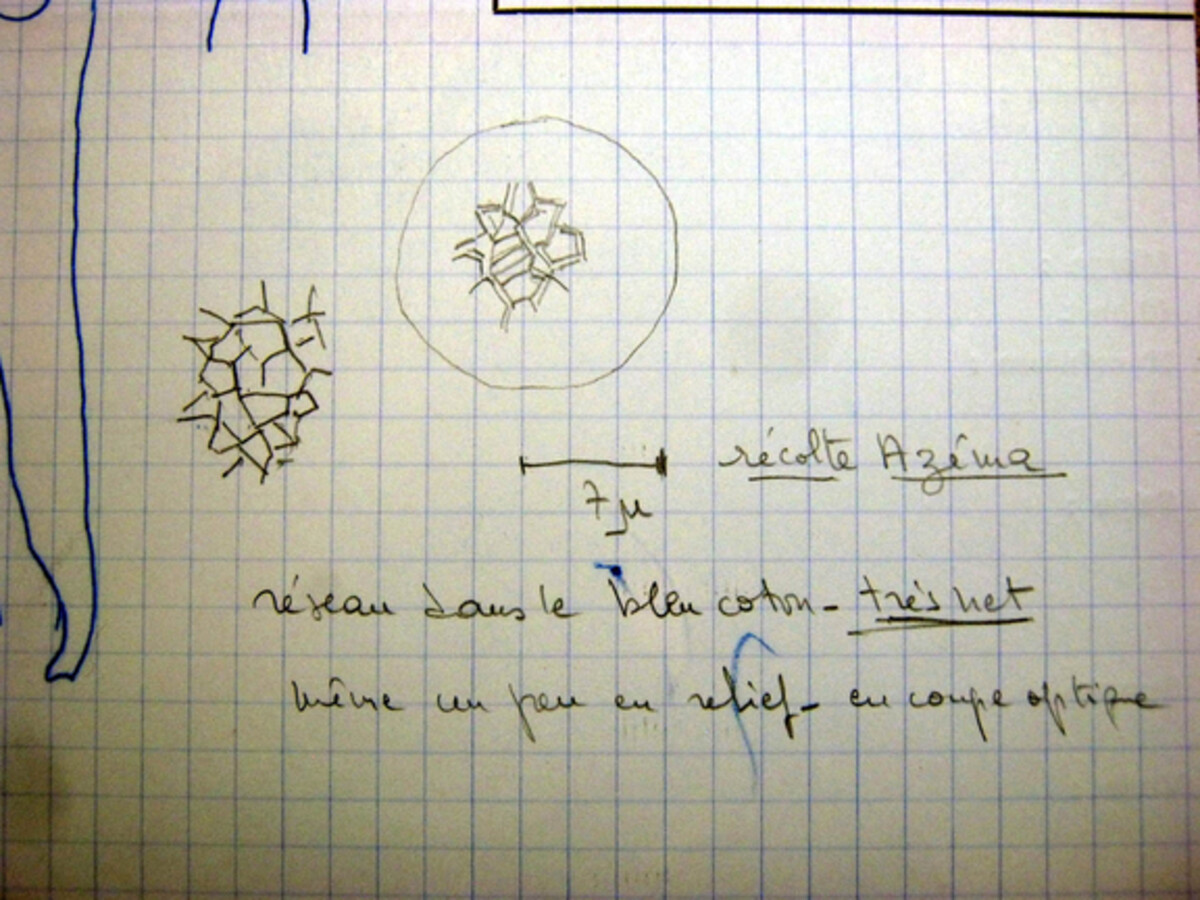 récolte Azéma
7 µ
réseau dans le bleu coton - très net
même un peu en relief - en coupe optique